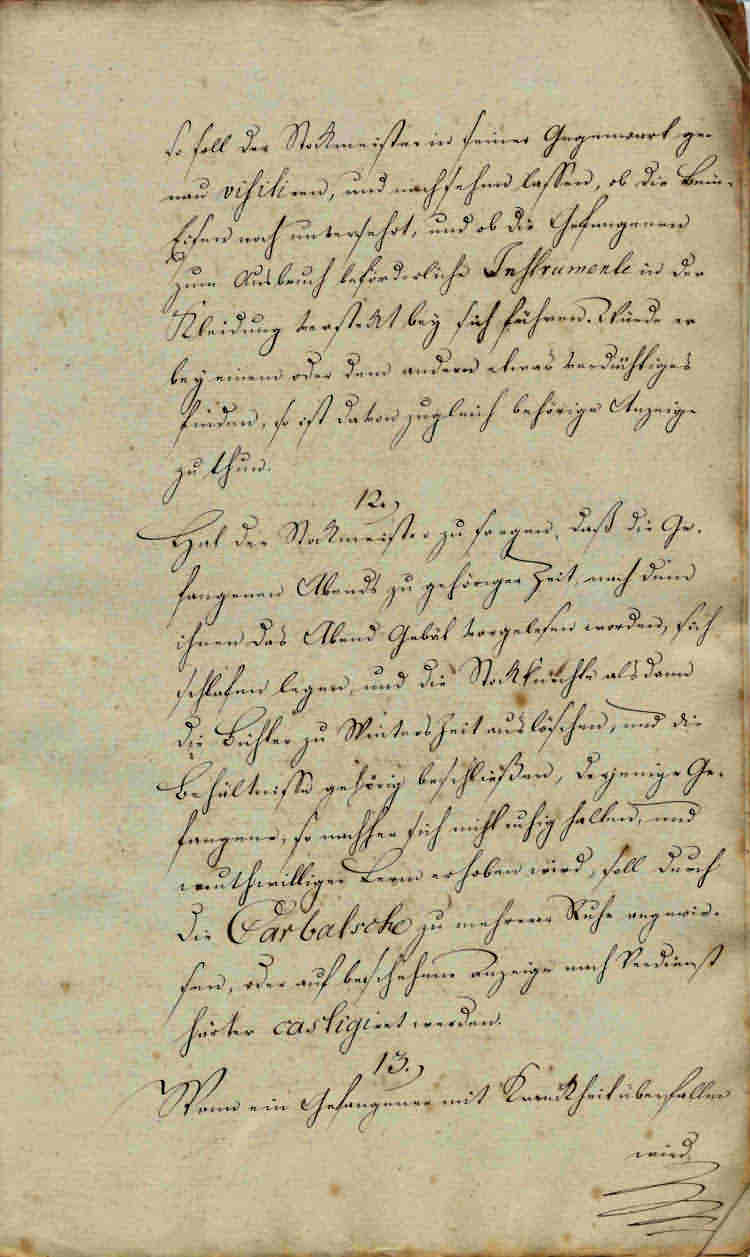 so soll der Stokmeister in seiner Gegenwart ge-
nau visitiren, und nachsehen lassen, ob die Bein-
Eisen noch unversehrt, und ob die Gefangenen
zum Ausbruch beförderliche Instrumente in der
Kleidung verstekt bey sich führen. Würde er
bey einem oder dem andern etwas verdächtiges
finden, so ist davon zugleich behörige Anzeige
zu thun.
12.,
Hat der Stokmeister zu sorgen, daß die Ge-
fangenen Abends zu gehöriger Zeit, nach dem
ihnen das Abend Gebät vorgelesen worden, sich
schlafen legen, und die Stokknechte alsdann
die Lichter zu Winters Zeit auslöschen, und die
Behältnisse gehörig beschließen, derjenige Ge-
fangene, so nachher sich nicht ruhig halten, und
muthwilliger Lerm erhoben wird, soll durch
die Carbatsche zu mehrerer Ruhe angewie-
sen, oder auf beschehene anzeige nach Verdienst
härter castigiret werden.
13.,
Wann ein Gefangener mit Krankheit überfallen
wird,